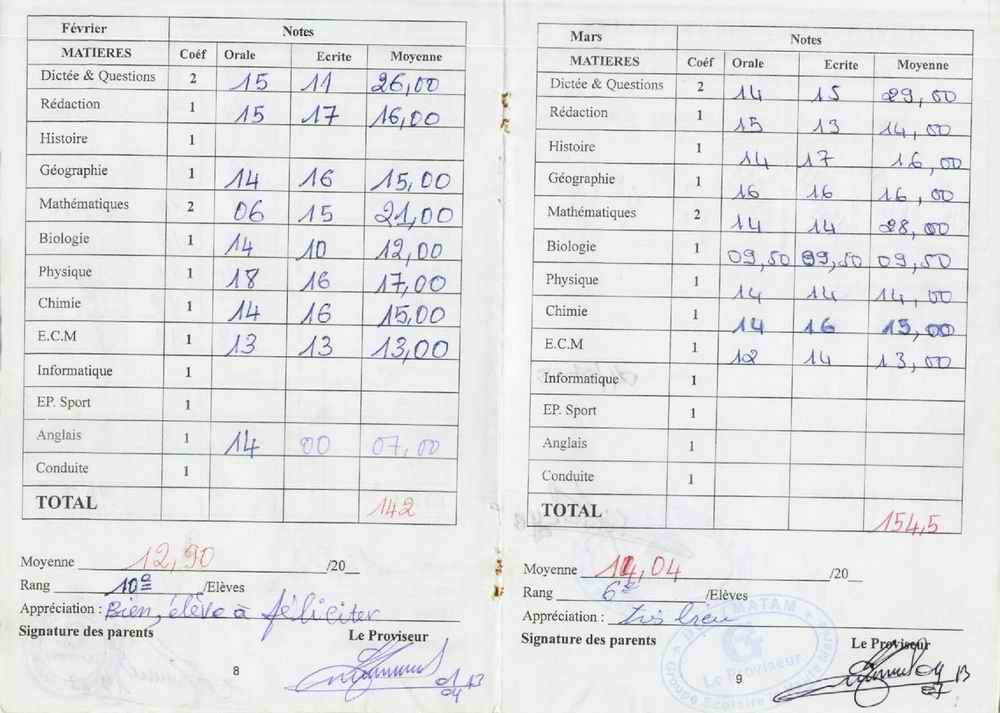 Février Notes
MATIERES Coéf Orale Ecrite Moyenne
Dictée & Questions 2 15 11 26,00
Rédaction 1 15 17 16,00
Histoire 1
Géographie 1 14 16 15,00
Mathématiques 2 06 15 21,00
Biologie 1 14 10 12,00
Physique 1 18 16 17,00
Chimie 1 14 16 15,00
E.C.M 1 13 13 13,00
Informatique 1
EP. Sport 1
Anglais 1 14 00 07,00
Conduite 1
TOTAL 142
Moyenne 12,90 /20
Rang 10e /Elèves
Appréciation : Bien, élève à féliciter
Signature des parents Le Proviseur
8
Mars Notes
MATIERES Coéf Orale Ecrite Moyenne
Dictée & Questions 2 14 15 29,00
Rédaction 1 15 13 14,00
Histoire 1 14 17 16,00
Géographie 1 16 16 16,00
Mathématiques 2 14 14 28,00
Biologie 1 09,50 09,50 09,50
Physique 1 14 14 14,00
Chimie 1 14 16 15,00
E.C.M 1 12 14 13,00
Informatique 1
EP. Sport 1
Anglais 1
Conduite 1
TOTAL 154,5
Moyenne 14,04 /20
Rang 6e /Elèves
Appréciation : très bien
Signature des parents Le Proviseur
MATAM
Le Proviseur
Groupe Scolaire
9